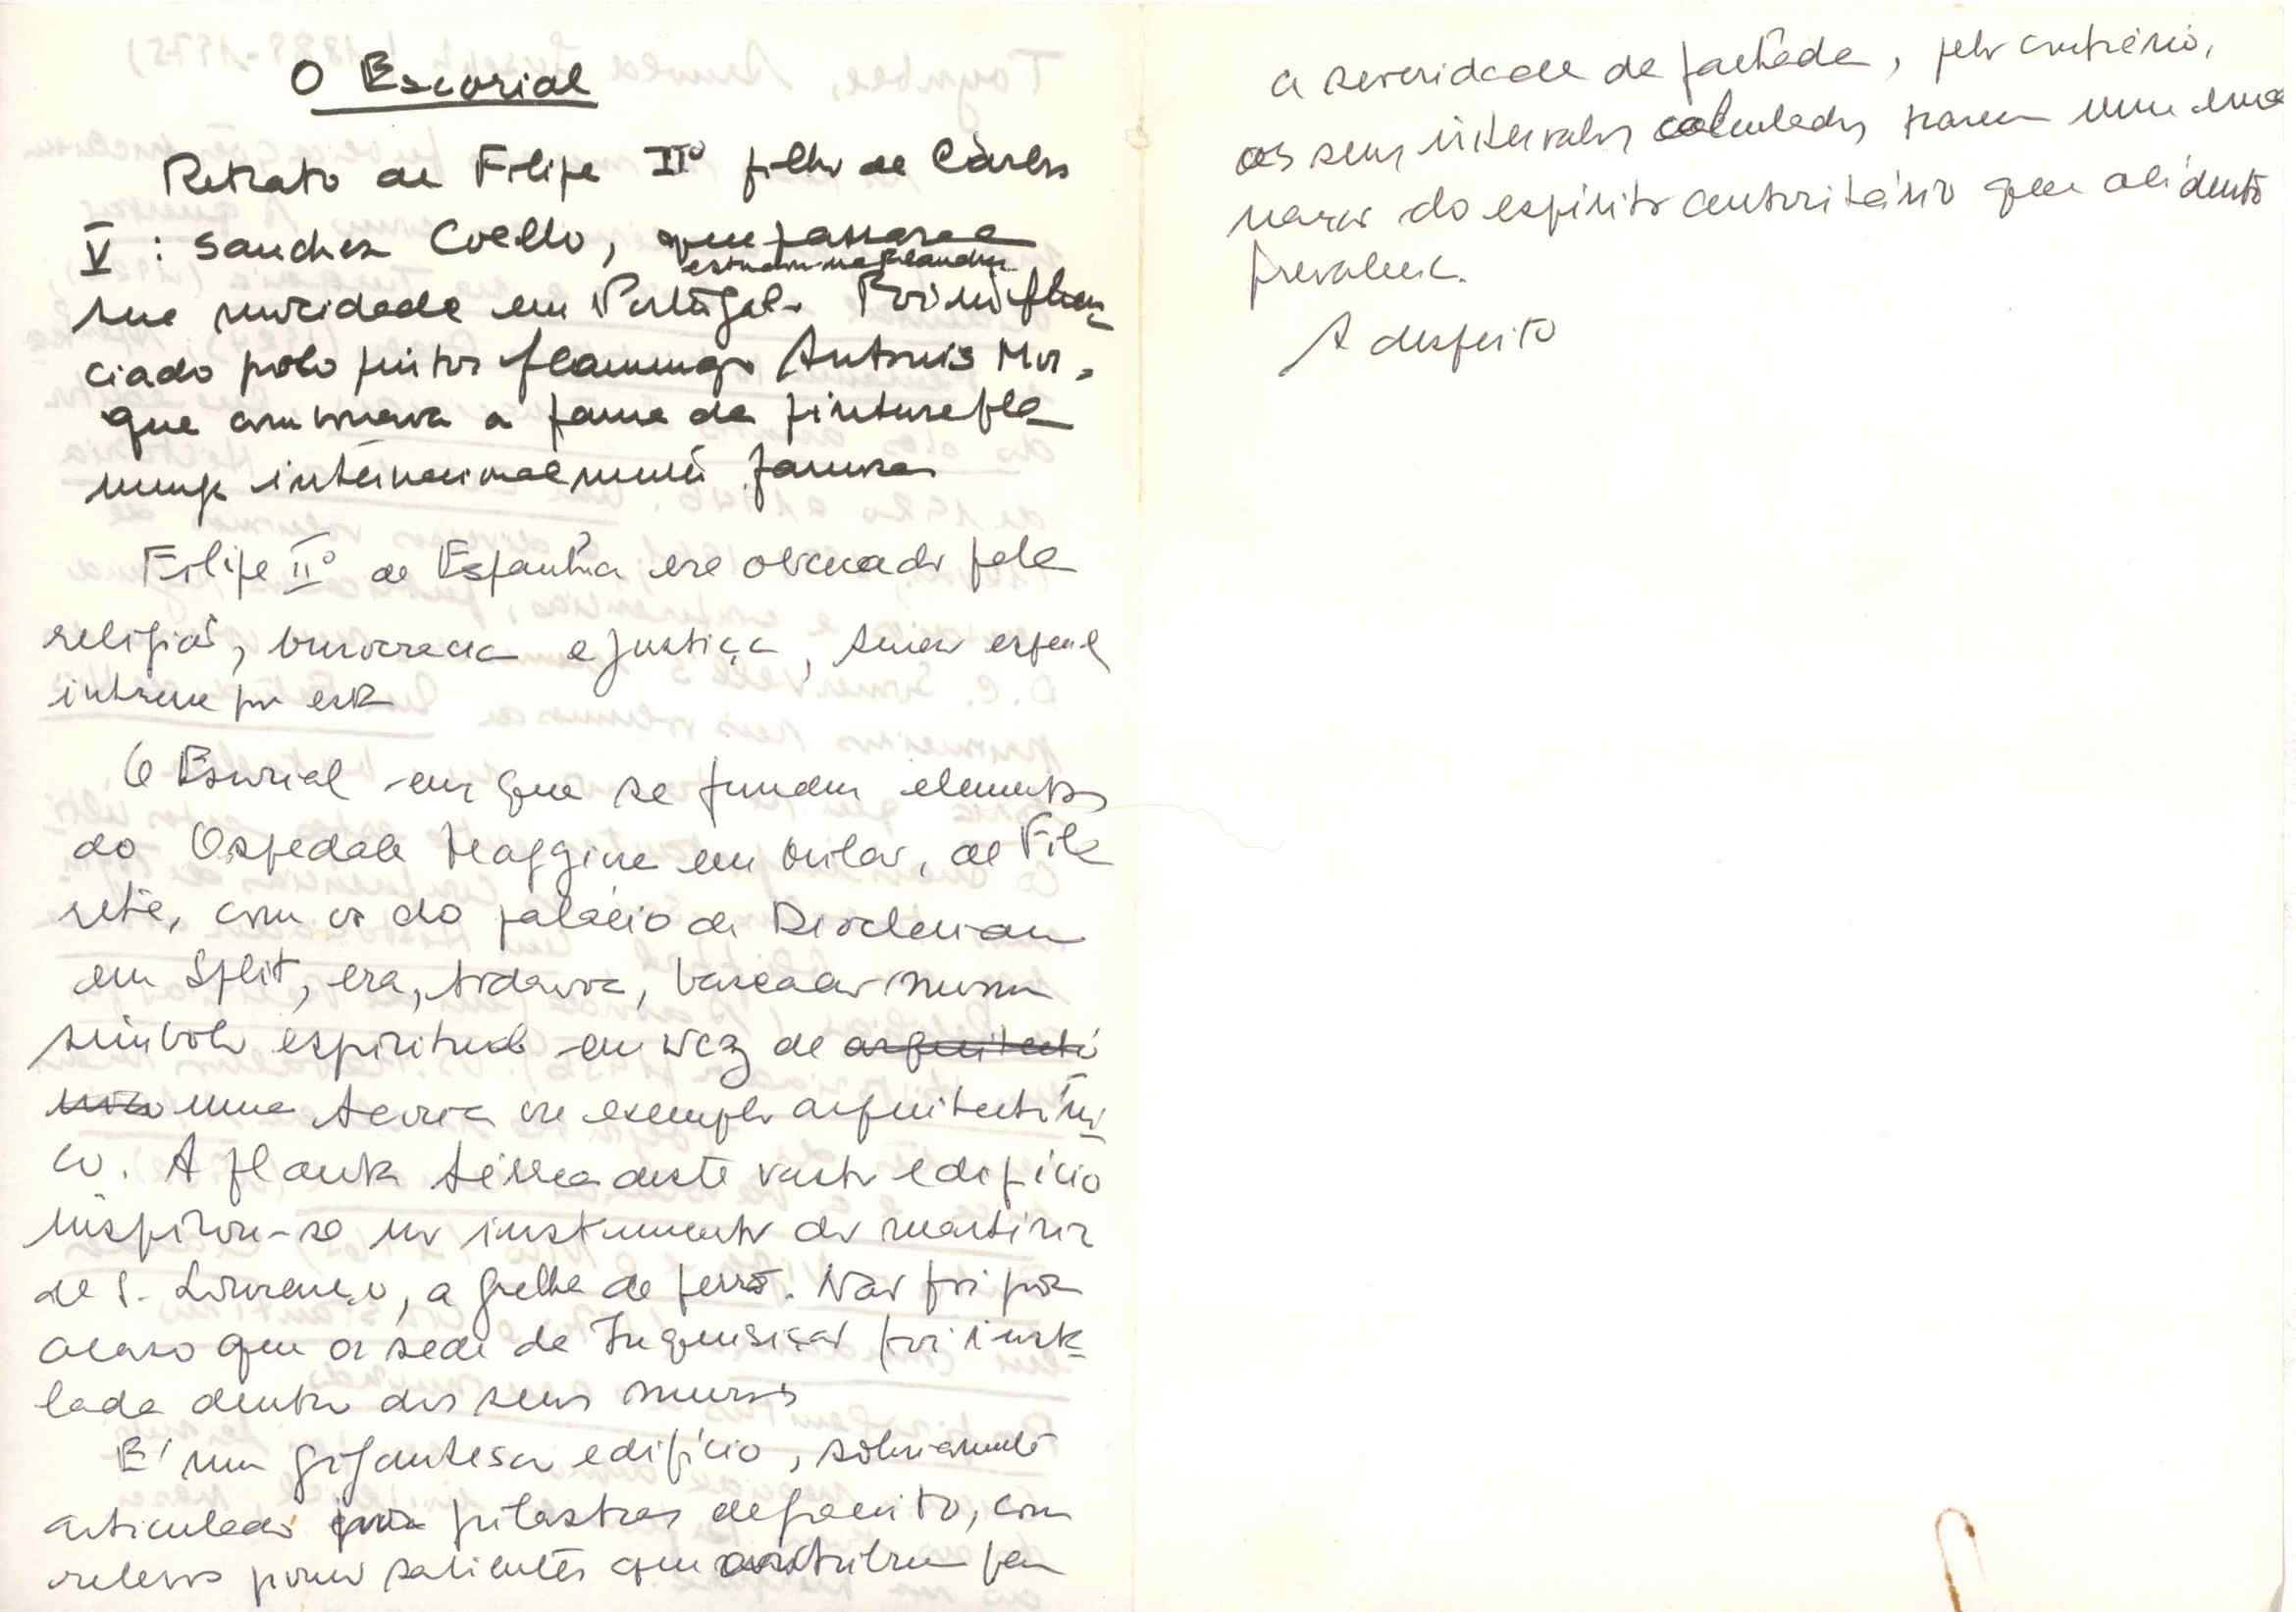 O Escorial
Retrato de Filipe IIº filho de Carlos
V : Sanchez Coello, que passara a
estudou na Flandres
sua mocidade em Portugal. Foi influen
ciado pelo pintor flamengo Antonis Mor,
que comunava a fama da pintura fla
menga internacionalmente famosa
Filipe IIº de Espanha era obcecado pela
religião, burocracia e justiça,
por esta
O Escorial em que se fundem elementos
do Ospedale Maggiore em Milão, de Fila
rete, com os do palácio de Diocleciano
em Split, era, todavia, baseado numa
símbolo espiritual em vez de arquitectó
nico uma teoria ou exemplo arquitectóni
co. A planta térrea deste vasto edifício
inspirou-se no instrumento do martírio
de S. Lourenço, a grelha de ferro. Não foi por
acaso que a sede da Inquisição foi insta
lada dentro dos seus muros
É um gigantesco edifício, sobriamente
articulado por pilastras de granito, com
relevos pouco salientes que contribuem para
a severidade da fachada, pelo contrário,
os seus intervalos calculados trazem uma ema
nação do espírito autoritário que ali dentro
prevalecia.
A despeito